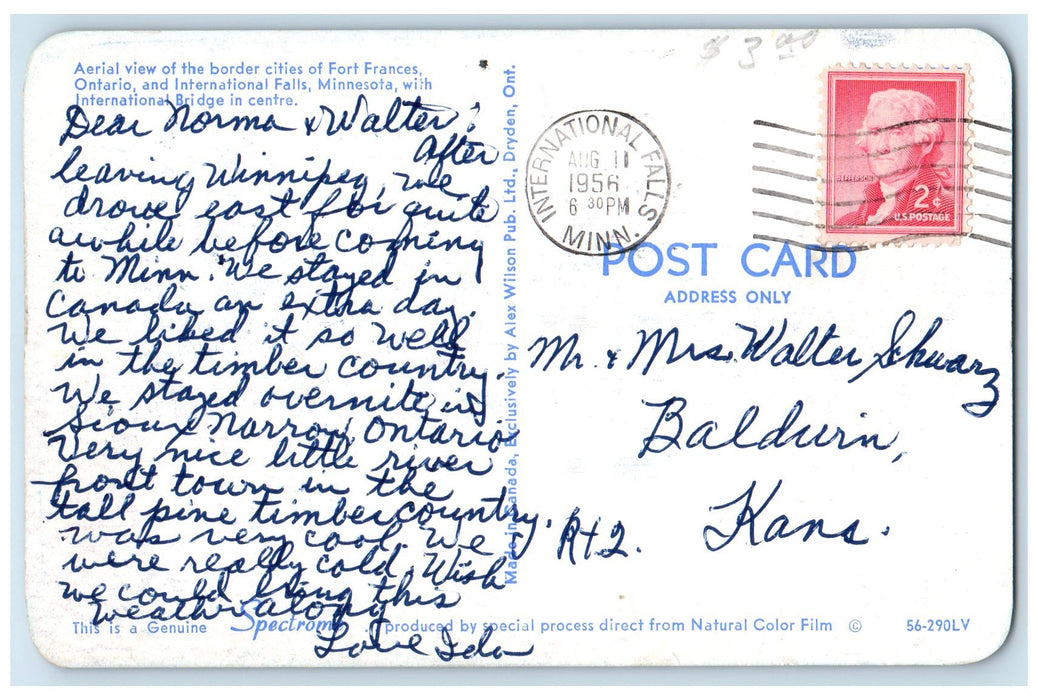 $3.00
Aerial view of the border cities of Fort Frances,
Ontario, and International Falls, Minnesota, with
International Bridge in centre.
Dear Norma & Walter:
After
leaving Winnipeg, we
drove east for quite
awhile before coming
to Minn. We stayed in
Canada an extra day.
We liked it so well
in the timber country.
We stayed overnite in
Sioux Narrow, Ontario.
Very nice little river
front town in the
tall pine timber country.
was very cool. We
were really cold. Wish
we could bring this
weather along
Love Ida
This is a Genuine Spectrome produced by special process direct from Natural Color Film © 56-290LV
Made in Canada, Exclusively by Alex Wilson Pub. Ltd., Dryden, Ont.
INTERNATIONAL FALLS
AUG 11
1956
6 30 PM
MINN.
JEFFERSON
2¢
U.S. POSTAGE
POST CARD
ADDRESS ONLY
Mr. & Mrs. Walter Schwarz
Baldwin,
Rt 2. Kans.